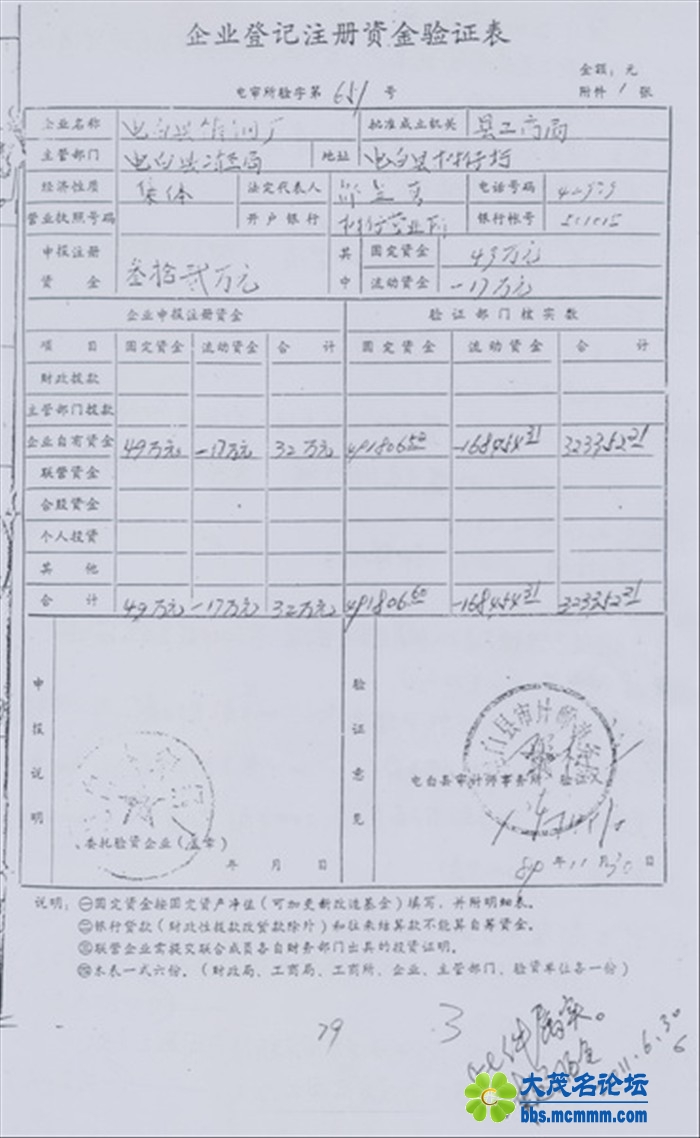 企业登记注册资金验证表
金额：元
电审所验字第 651 号
附件 1 张
企业名称 电白县 厂 批准成业机关 县工商局
主管部门 电白县 局 地址 电白县
经济性质 集体 法定代表人 电话号码
营业执照号码 开户银行 营业所 银行帐号
申报注册资金 叁拾贰万元 其中 固定资金 49万元
流动资金 -17万元
企业申报注册资金 验证部门核实数
项目 固定资金 流动资金 合计 固定资金 流动资金 合计
财政拨款
主管部门拨款
企业自有资金 49万元 -17万元 32万元 491806 -168454 31 323352
联营资金
合股资金
个人投资
其他
合计 49万元 -17万元 32万元 491806 60 -168454 31 323352
申报说明
验证意见
电白县审计师事务所 验证人
委托验资企业（盖章）
年 月 日
年 11 月 30 日
说明：㊀固定资金按固定资产净值（可加更新改造基金）填写，并附明细表。
㊁银行贷款（财政性拨款改贷款除外）和往来结算款不能算自筹资金。
㊂联营企业需提交联合成员各自财务部门出具的投资证明。
㊃本表一式六份。（财政局、工商局、工商所、企业、主管部门、验资单位各一份）
79 3
大茂名论坛
bbs.mcmmm.com